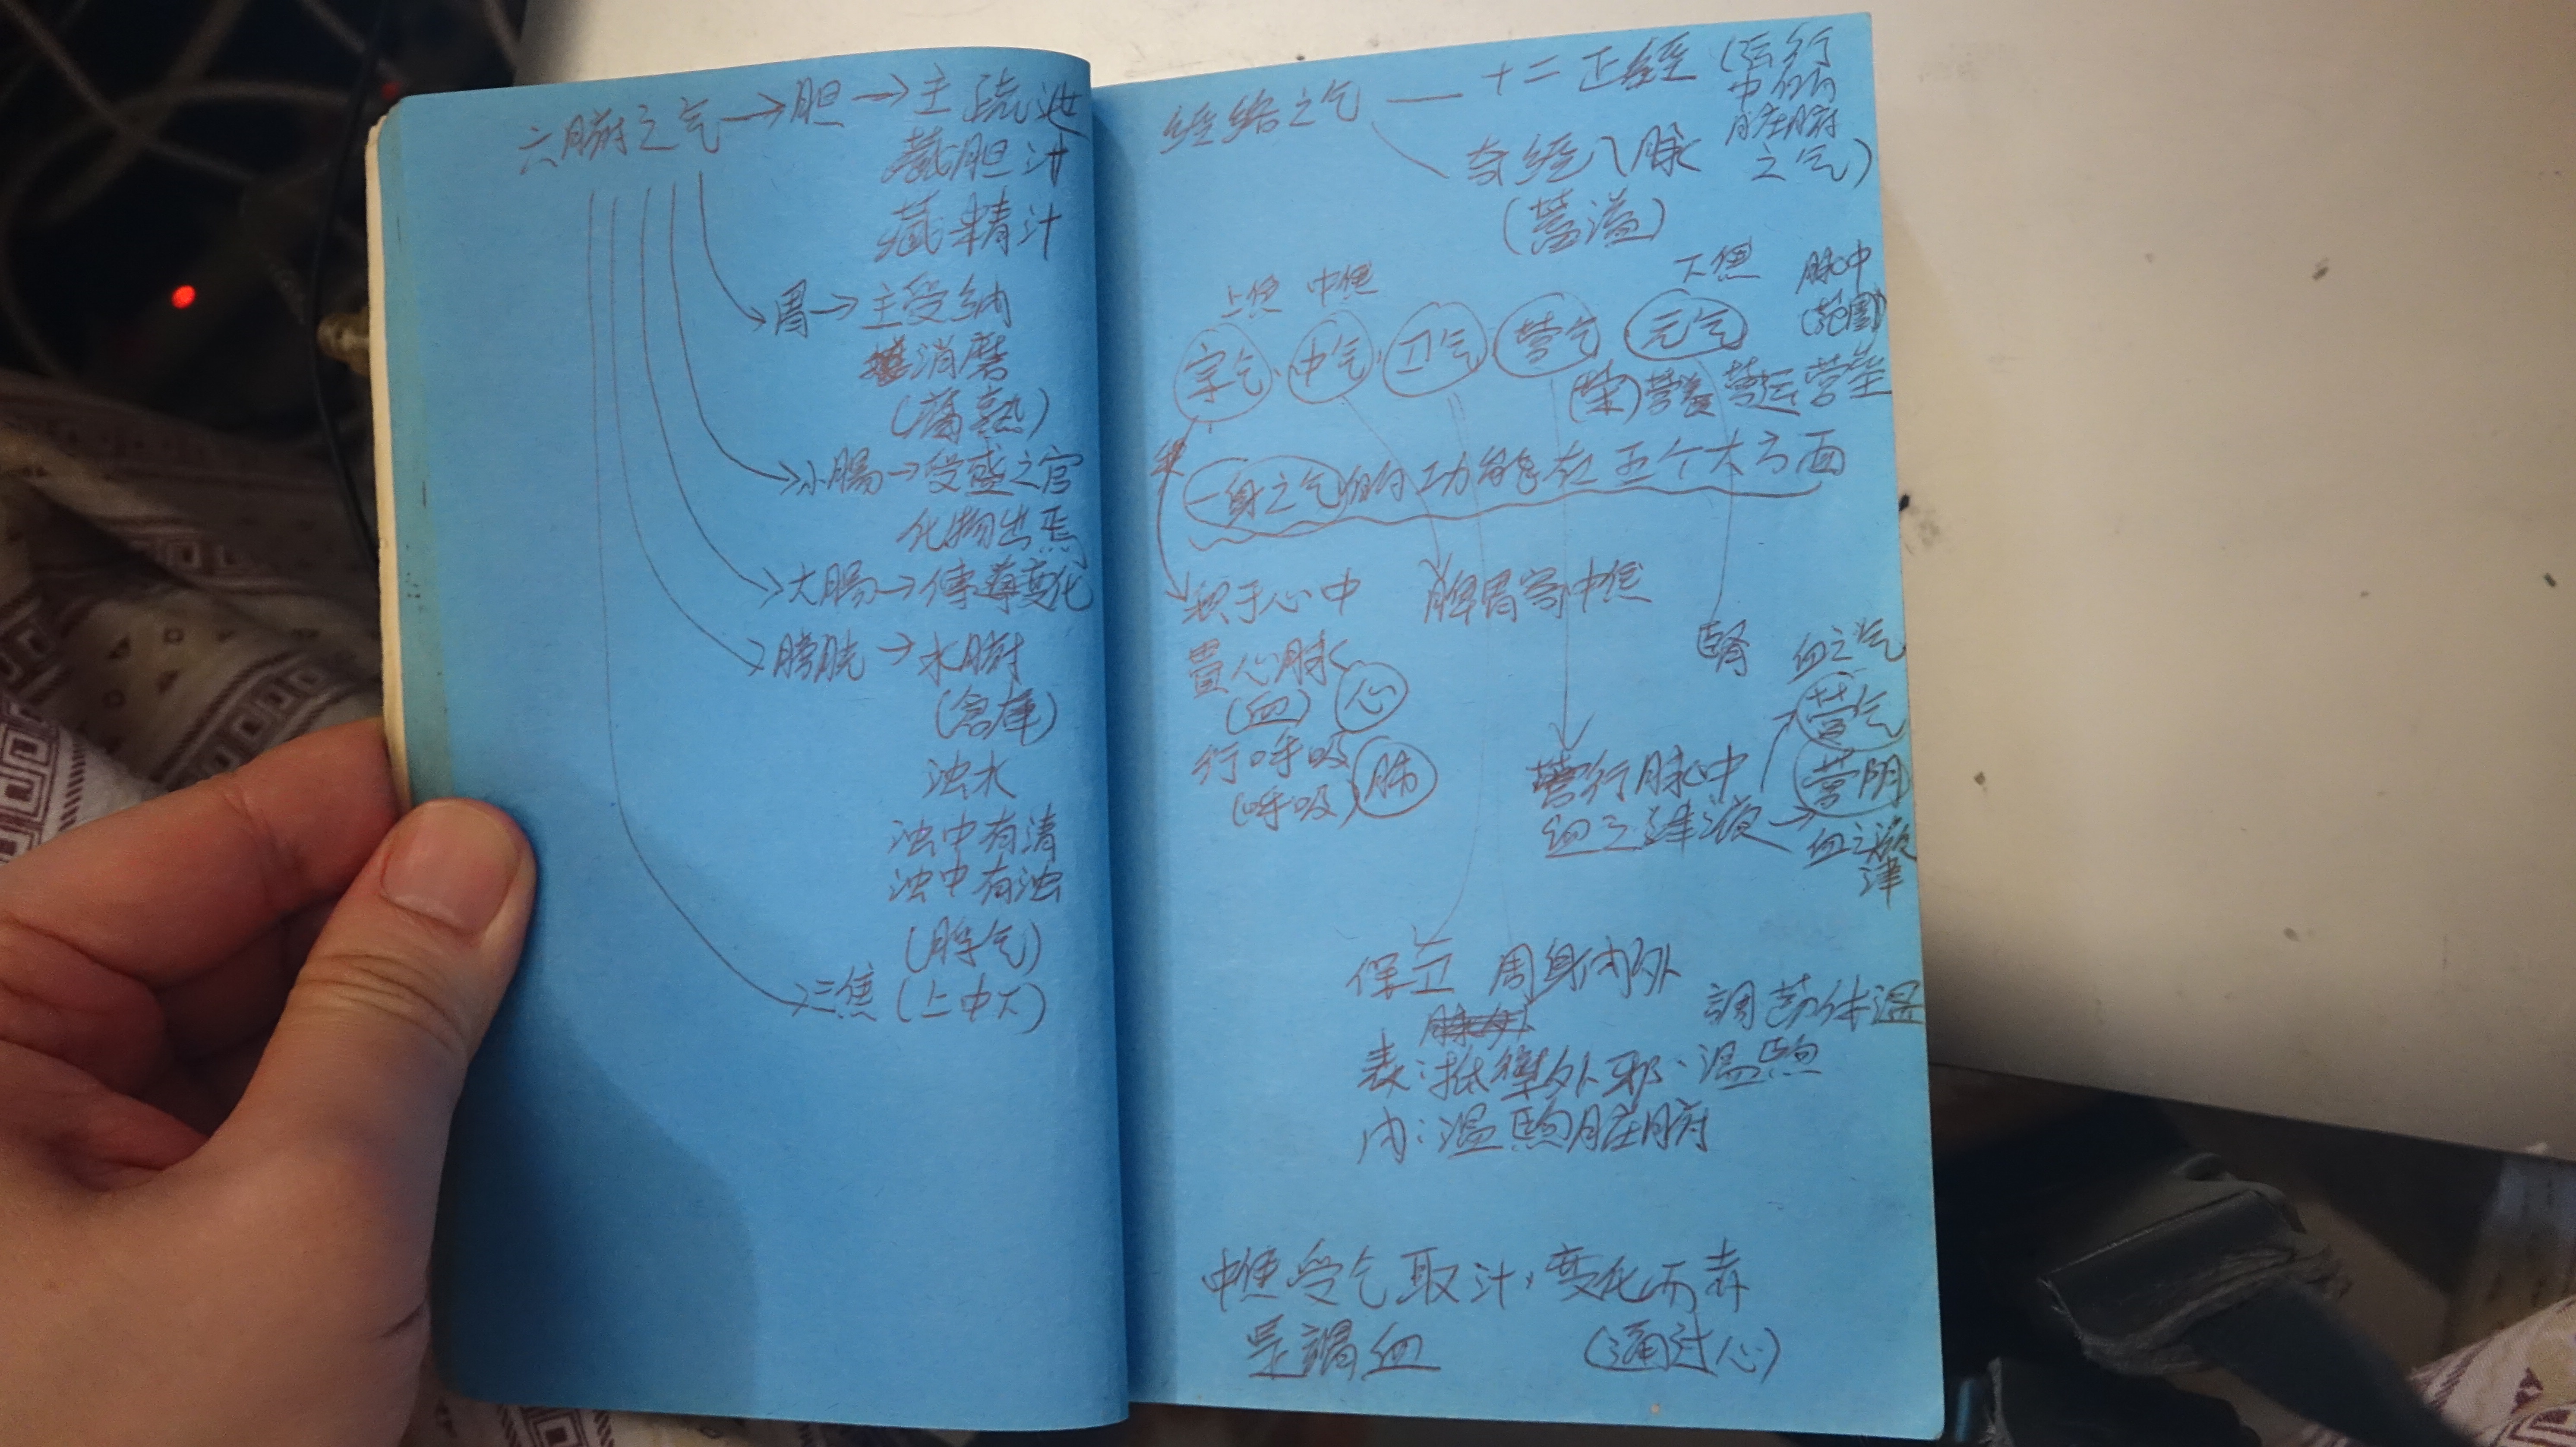 六腑之气→胆→主疏泄
藏胆汁
藏精汁
胃→主受纳
消磨
(腐熟)
小腸→受盛之官
化物出焉
大腸→傳導变化
膀胱→水腑
(倉庫)
浊水
浊中有清
浊中有浊
(脬气)
三焦(上中下)
经络之气 — 十二正經 (运行
中的
脏腑
之气)
奇经八脉
(蓄溢)
上焦 中焦 下焦 脉中
(范围)
宗气、中气、卫气 营气 元气
(荣)营养 营运 营
一身之气的功能在五个大方面
积于心中 脾胃 中焦
貫心脉
(血) 心
行呼吸
(呼吸) 肺
腎 血之气
营气
營行脉中
营阴
血之津液
血之液
津
保卫 周身内外
調节体温
表:抵禦外邪、温煦
内:温煦脏腑
中焦受气取汁,变化而赤
是謂血 (通过心)